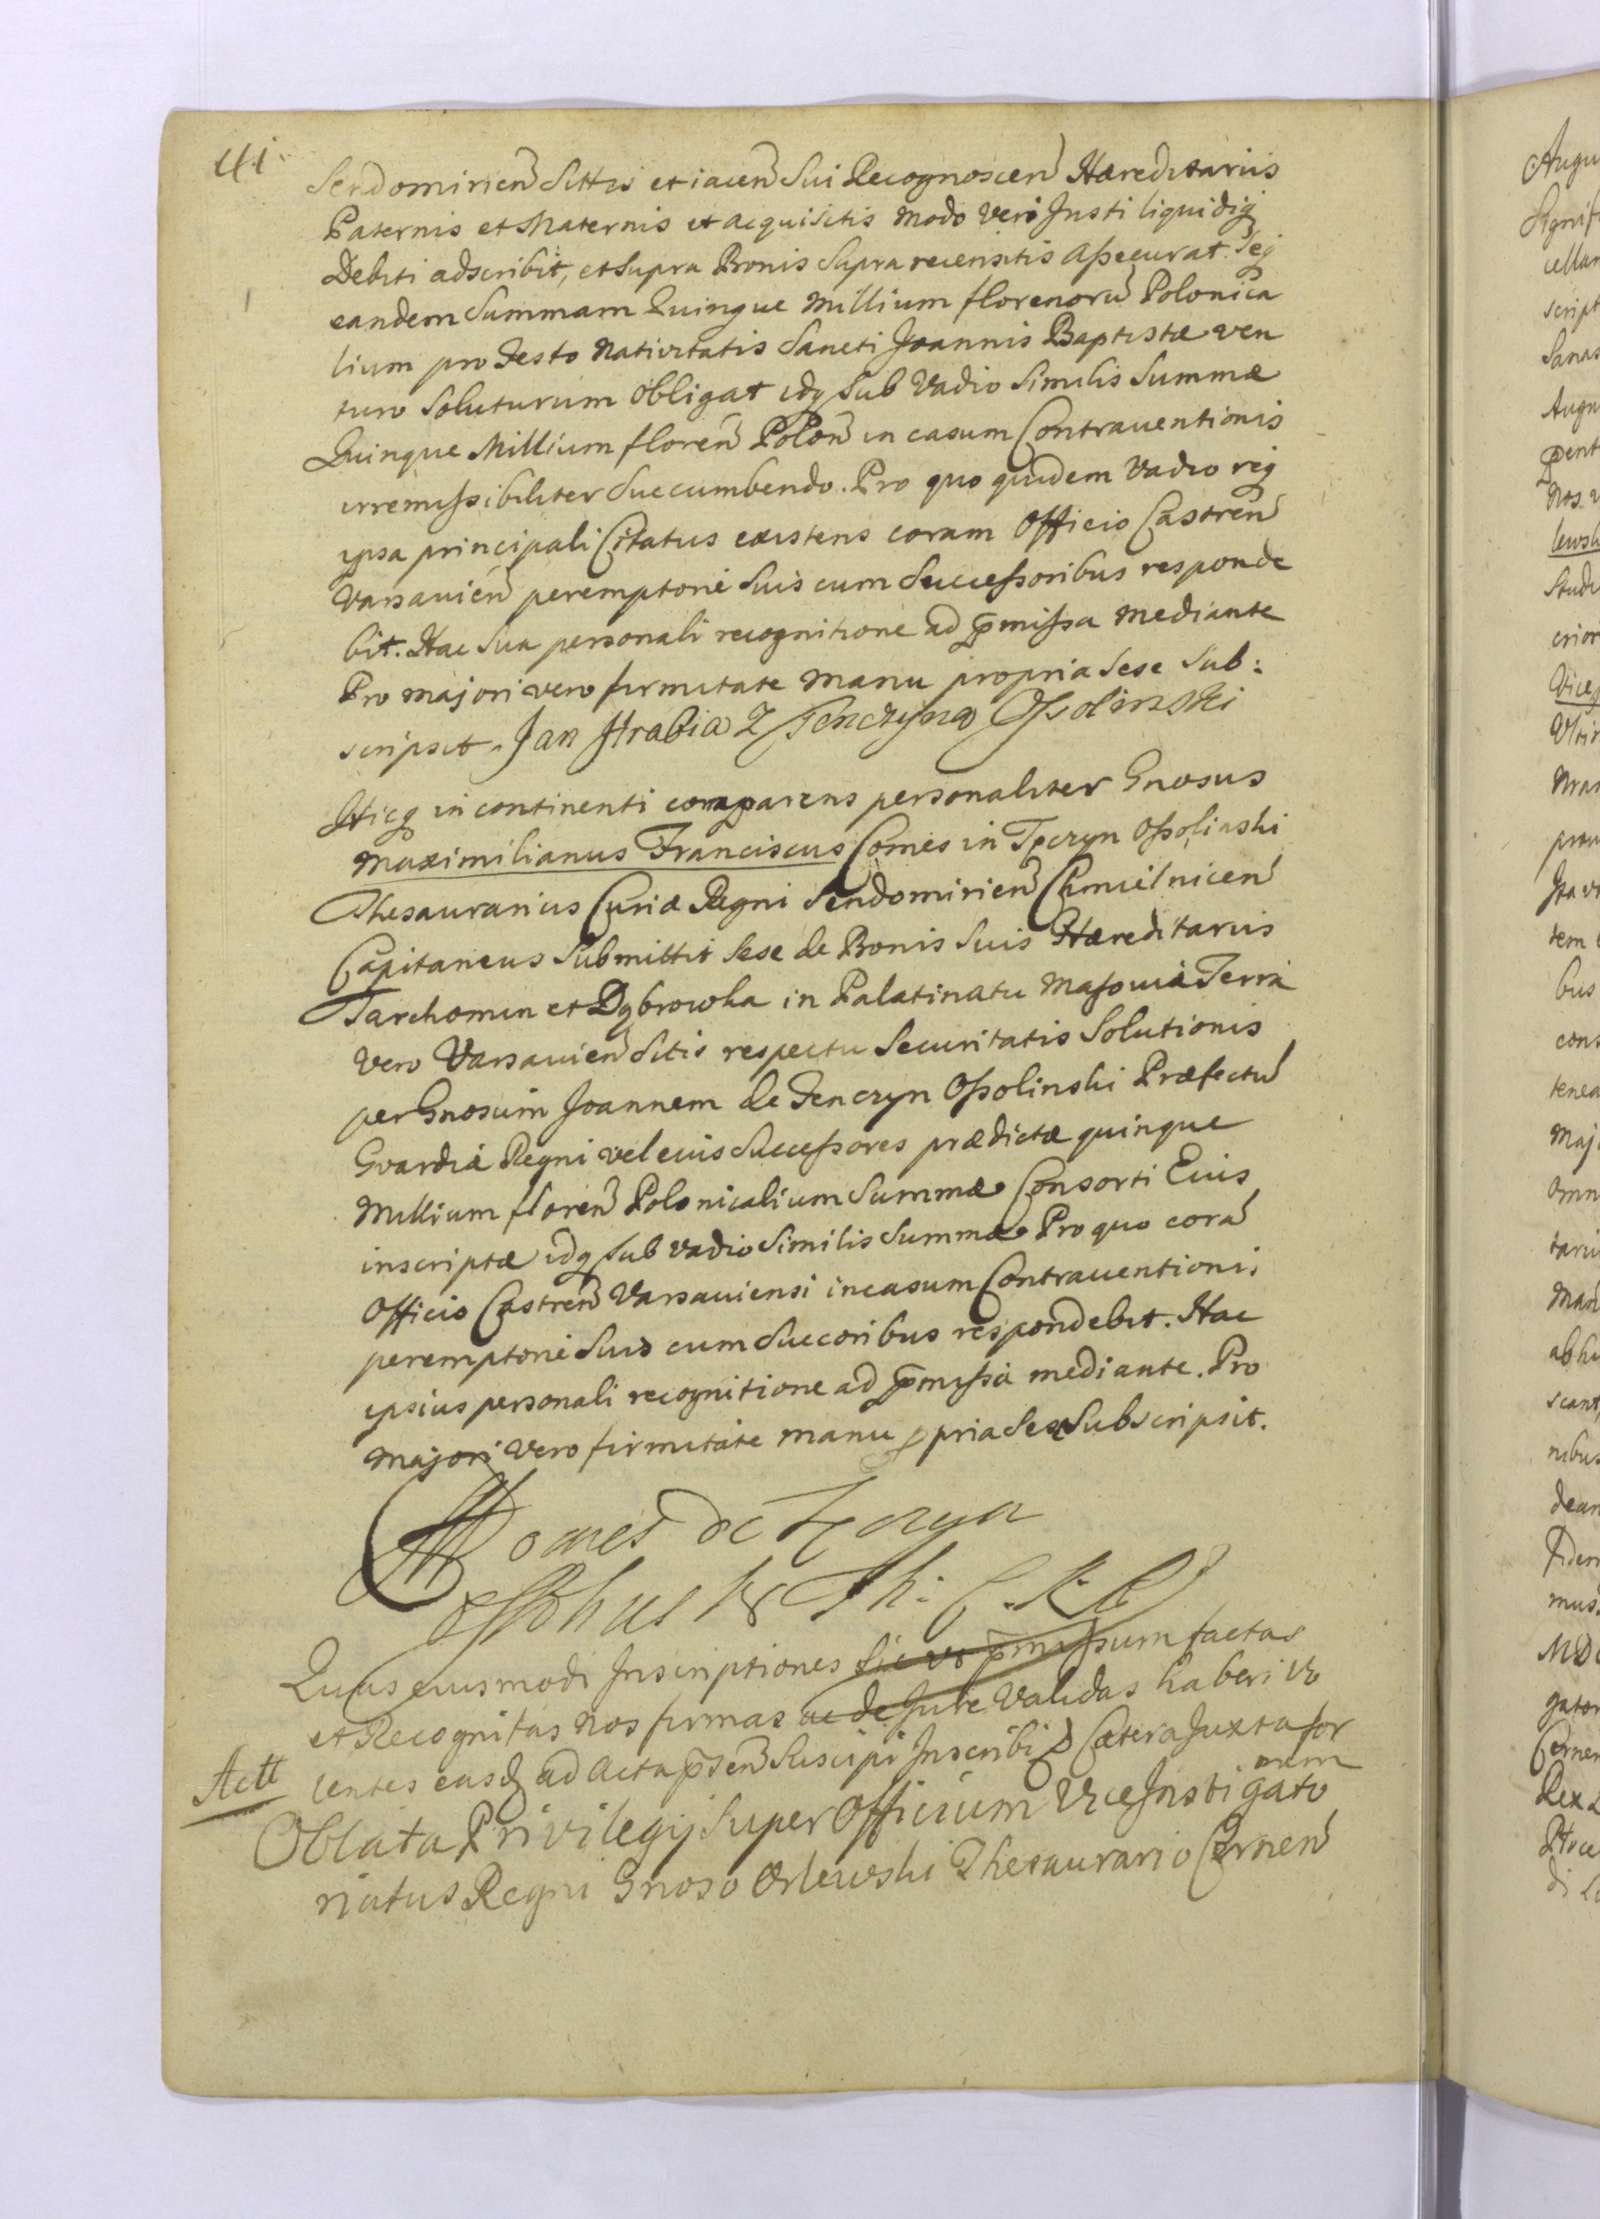 41.
Sendomirien Sittis et iacen Sui Recognoscen Hæreditariis
Paternis et Maternis et acquisitis modo veri Justi liquidiq
Debiti adscribit, et Supra Bonis Supra recensitis assecurat. Seq
eandem Summam Quinque Millium florenorū Polonica
lium pro Festo Nativitatis Sancti Joannis Baptistæ ven
turo Soluturum obligat idq Sub Vadio Similis Summæ
Quinque Millium floren Polon in casum Contraventionis
irremissibiliter Succumbendo. Pro quo quidem Vadio req
ipsa principali Citatus existens coram Officio Castren
Varsavien peremptorie Suis cum Successoribus responde
bit. Hac Sua personali recognitione ad p̄missa mediante
Pro majori vero firmitate manu propria Sese Sub:
scripsit. Jan Hrabia Z Tenczyna Ossolinski
Hicq in continenti comparens personaliter Gnosus
Maximilianus Franciscus Comes in Tęczyn Ossolinski
Thesaurarius Curiæ Regni Sendomirien Chmielnicen
Capitaneus Submittit Sese de Bonis Suis Hæreditariis
Tarchomin et Dąbrowka in Palatinatu Masoviæ Terra
vero Varsavien Sitis respectu Securitatis Solutionis
per Gnosum Joannem de Tenczyn Ossolinski Præfectū
Gvardiæ Regni vel eius Successores prædictæ quinque
Millium floren Polonicalium Summæ Consorti Eius
inscriptæ idq Sub vadio Similis Summæ Pro quo corā
Officio Castren Varsaviensi in casum Contraventionis
peremptorie Suis cum Succoribus respondebit. Hac
ipsius personali recognitione ad p̄missa mediante. Pro
majori vero firmitate manu ppria Sese Subscripsit.
Comes de Tęczyn
Quas eiusmodi Inscriptiones Sic ut p̄missum factas
et Recognitas Nos firmas ac de Jure Validas haberi vo
lentes easq ad Acta p̄sen Suscipi Inscribi & Cætera Juxta for
mam
Actt
Oblata Privilegij Super Officium Vice Instigato
riatus Regni Gnoso Orlewski Thesaurario Cernen